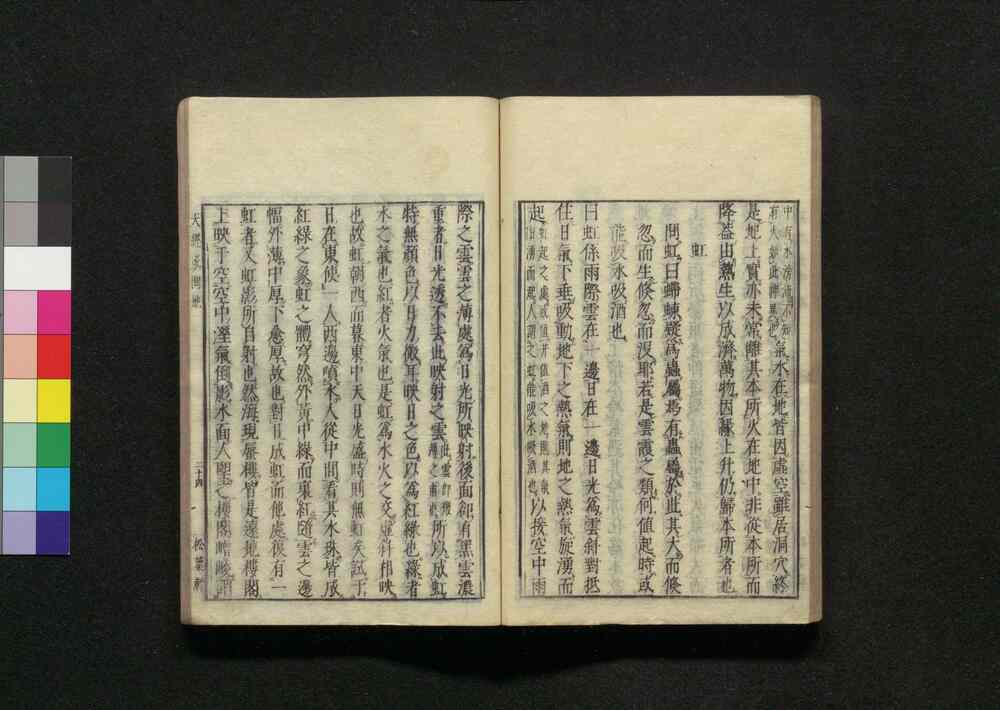 是起上實亦未常離其本所火在地中非從本所而
降葢由熱生以成濟萬物因緣上升仍歸本所者也
虹
問虹曰蝃蝀疑爲蟲屬焉有蟲蟲於此其大而倐
忽而生倐忽而沒耶若是雲霞之類何値起時或
能吸水吸酒也
曰虹係雨際雲在一邊日在一邊日光爲雲斜對抵
住日氣下垂吸動地下之熱氣則地之熱氣旋湧而
起 以接空中雨
際之雲雲之薄處爲日光所映射後面却有黑雲濃
重者日光透不去此映射之雲 所以成虹
特無顏色以日力微耳映日之色以爲紅綠也綠者
水之氣也紅者火氣也是虹爲水火之交 斜相映
也故虹朝西而暮東中天日光盛時則無虹矣試于
日在東使一人西邊噴水人從中間看其水珠皆成
紅綠之象虹之體穹然外黃中綠而裏紅隨雲之邊
幅外薄中厚下愈厚故也對日成虹而他處復有一
虹者又虹影所自射也然海現蜃樓皆是遠地樓閣
上映于空空中溼氣倒影水面人望之樓閣
三十四
松葉軒